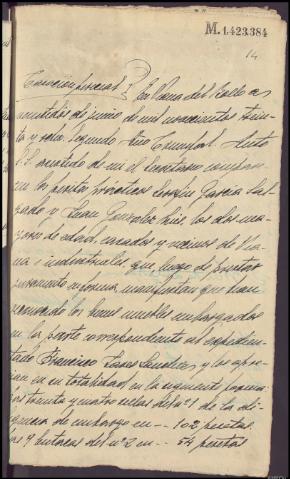 M.1.423.384
14
Tasación pericial } En Nava del Rey a
veintidós de junio de mil novecientos trein
ta y seis. Segundo Año Triunfal. Ante
S.S. asistido de mi el Secretario compare
cen los peritos prácticos García Sal
gado y Juan Gonzalez los dos ma
yores de edad, casados y vecinos de Na
va e industriales, que luego de prestar
juramento en forma, manifiestan que han
reconocido los bienes muebles embargados
en la parte correspondiente al expedien
tado Francisco y los apre
cian en su totalidad en la siguiente forma:
treinta y cuatro sillas del nº 1 de la di
ligencia de embargo en -- 102 pesetas
las 9 butacas del nº 2 en -- 54 pesetas